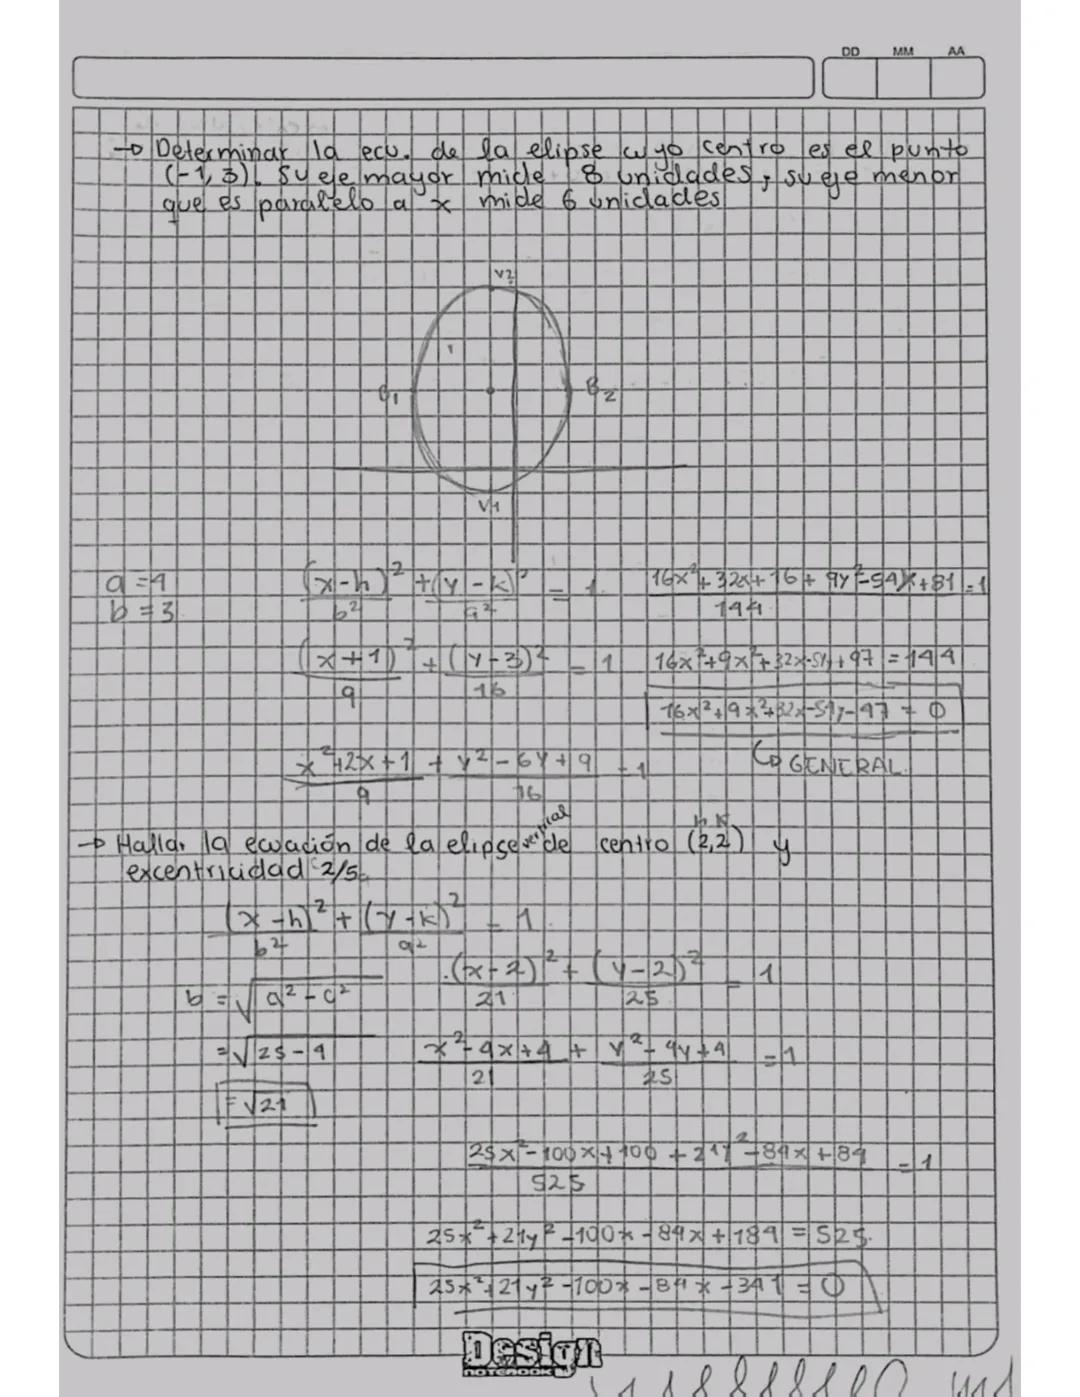 DD MM AA
→ Determinar la ecu. de la elipse cuyo centro es el punto
(-1, 3). Su eje mayor mide 8 unidades, su eje menor
que es paralelo a x mide 6 unidades
V2
B1 B2
V1
a = 4
b = 3
(x-h)²/b² + (y-k)²/a² = 1
(x+1)²/9 + (y-3)²/16 = 1
x²+2x+1/9 + y²-6y+9/16 = 1
16x²+32x+16+9y²-54x+81/144 = 1
16x²+9x²+32x-54y+97 = 144
16x²+9x²+32x-54y-47 = 0
GENERAL.
h k
→ Hallar la ecuación de la elipse vertical de centro (2,2) y
excentricidad 2/5.
(x-h)²/b² + (y-k)²/a² = 1.
b = √a²-c²
= √25-4
= √21
(x-2)²/21 + (y-2)²/25 = 1
x²-4x+4/21 + y²-4y+4/25 = 1
25x²-100x+100+21y²-84x+84/525 = 1
25x²+21y²-100x-84x+184 = 525.
25x²+21y²-100x-84x-341 = 0
Design
NOTEBOOK